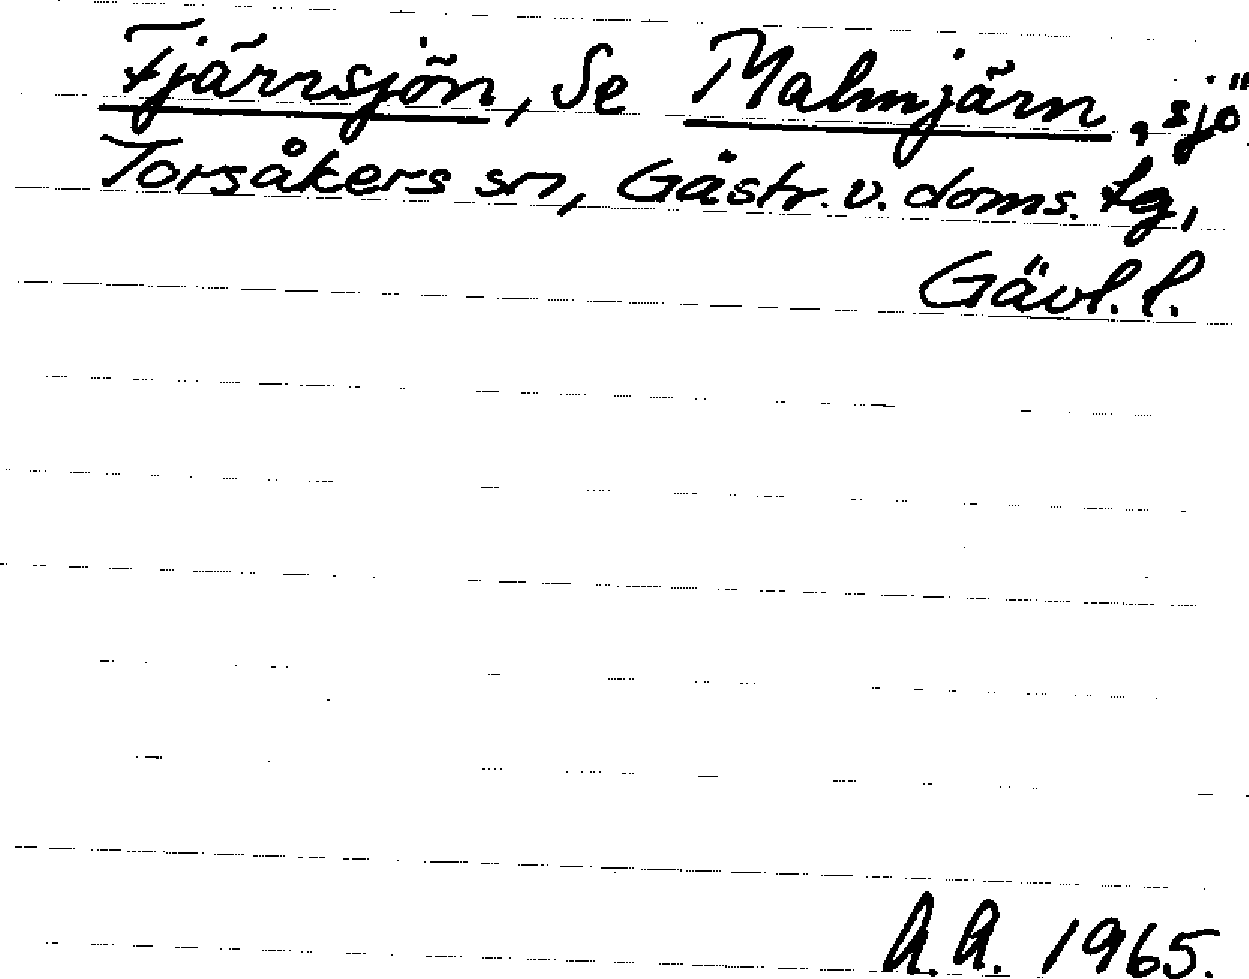 Fjärnsjön, Se Malmjärn, sjö
Torsåkers sn, Gästr. v. doms. tg,
Gävl. l.
A.A. 1965.